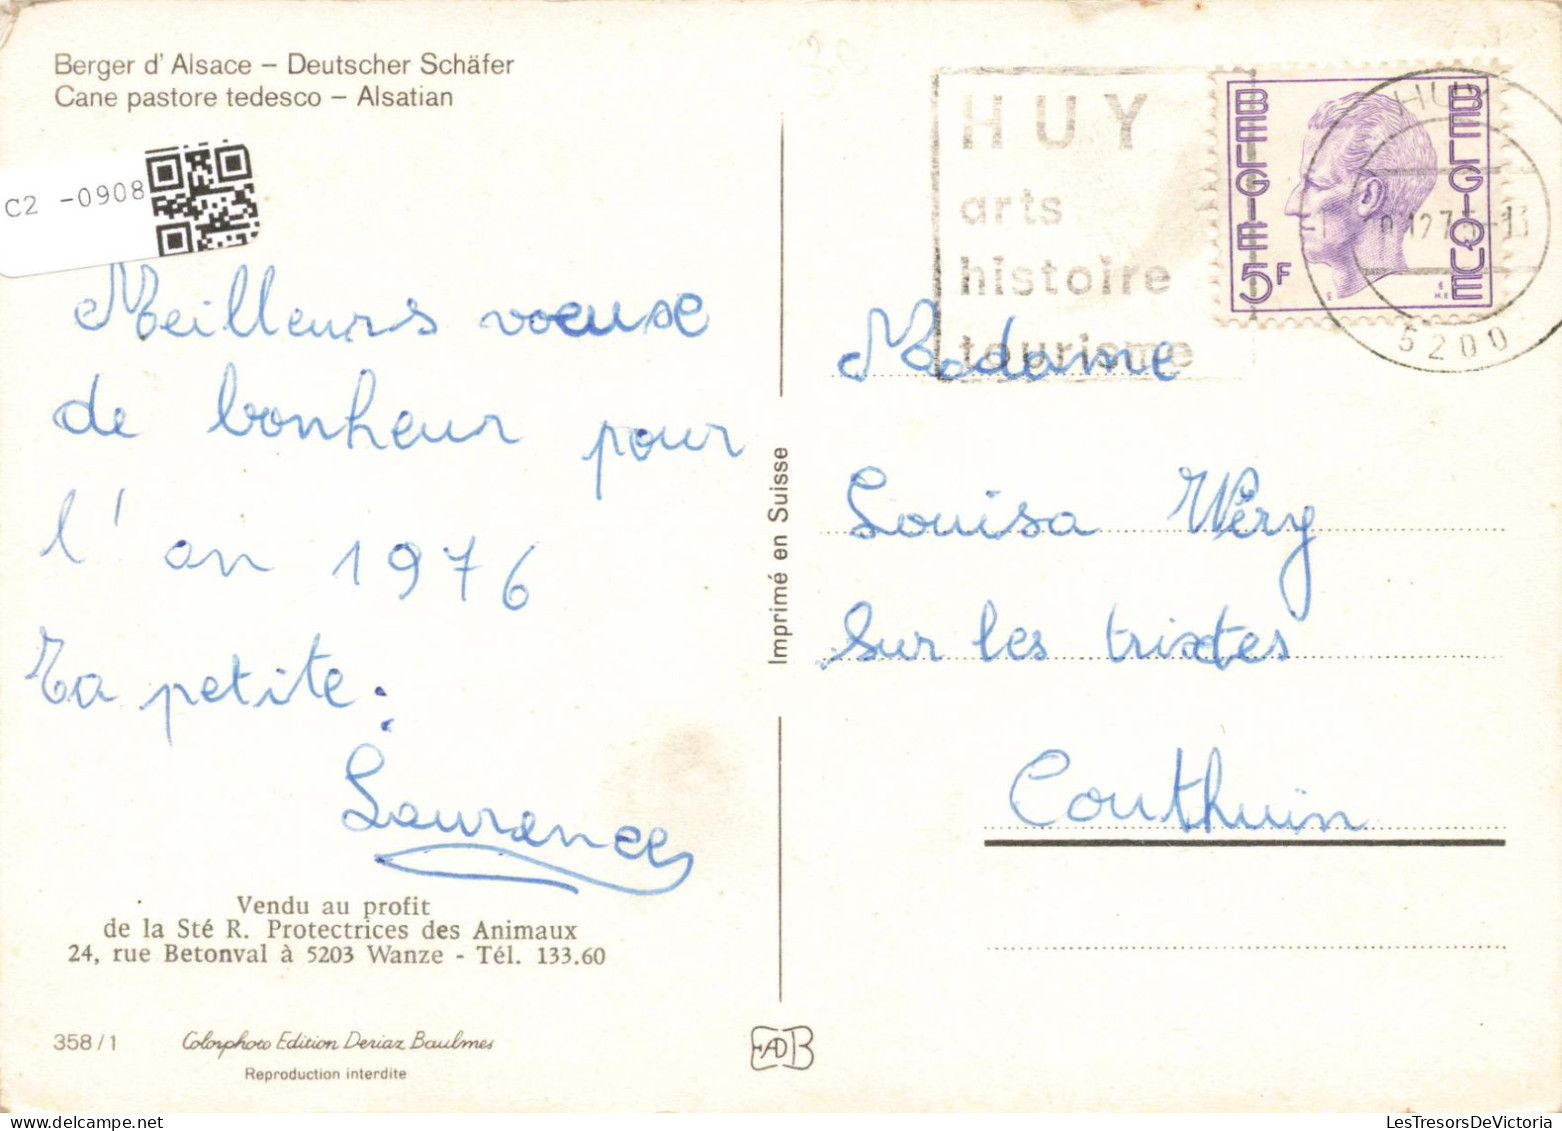 Berger d'Alsace – Deutscher Schäfer
Cane pastore tedesco – Alsatian
C2 -0908
Meilleurs voeuse
de bonheur pour
l'an 1976
Ta petite.
Laurence
Vendu au profit
de la Sté R. Protectrices des Animaux
24, rue Betonval à 5203 Wanze - Tél. 133.60
358/1
Colorphoto Edition Deriaz Baulmes
Reproduction interdite
Imprimé en Suisse
EADB
HUY
arts
histoire
tourisme
BELGIE 5F
BELGIQUE
HUY
5200
Madame
Louisa Wéry
Sur les trixtes
Couthuin
LesTresorsDeVictoria